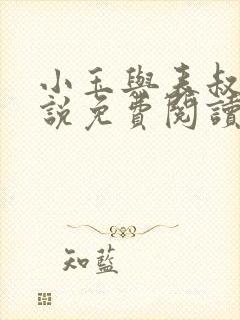 小玉與表叔
說免費閱讀
知藍